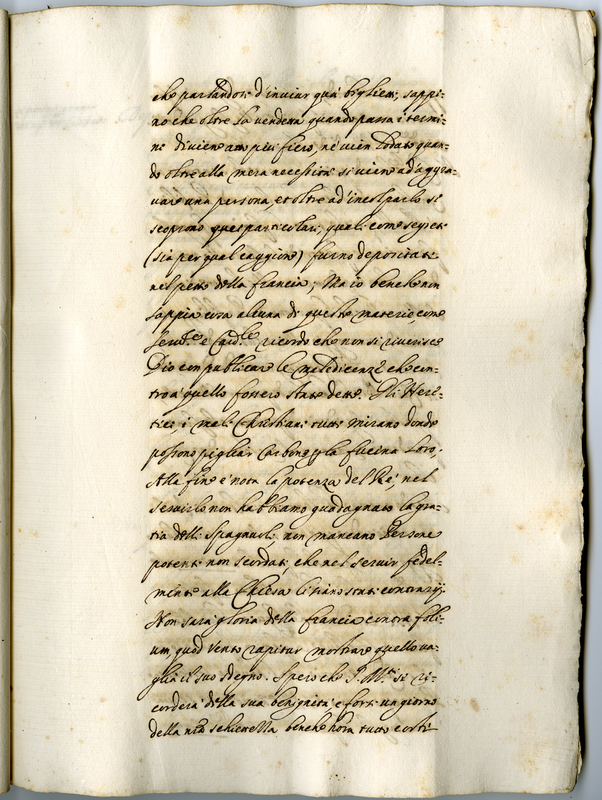 che parlandosi d'inviar quà biglietti, sappi-
no che oltre la vendetta quando passa i termi-
ni diviene atto più fiero, nè vien lodata quan-
do oltre alla mera necessità si viene ad aggra-
vare una persona, et oltre ad incolparlo si
scoprono que' particolari, quali come segreti
(sia per qual caggione) furno depositati
nel petto della francia; Ma io benche non
sappia cosa alcuna di queste materie, come
Serv.re e Card.le ricordo che non si riverisce
Dio con publicare le maledicenze che con-
tro à quello fossero state dette. Gli Here-
tici, i mali Christiani tutti mirano donde
possono pigliar carbone p la fucina loro,
Alla fine è nota la potenza del Rè, nel
servirlo non habbiamo guadagnato la gra-
tia delli Spagnuoli, non mancano Persone
potenti non scordati, che nel servir fedel-
mente alla Chiesa li siano stati contrarij.
Non sarà gloria della francia contra foli-
um, quod vento rapitur mostrare quello va-
glia il suo sdegno. Spero che S. M.tà si ri-
corderà della sua benignità, e forsi un giorno
della nra schiettezza benche hora tutti corti-